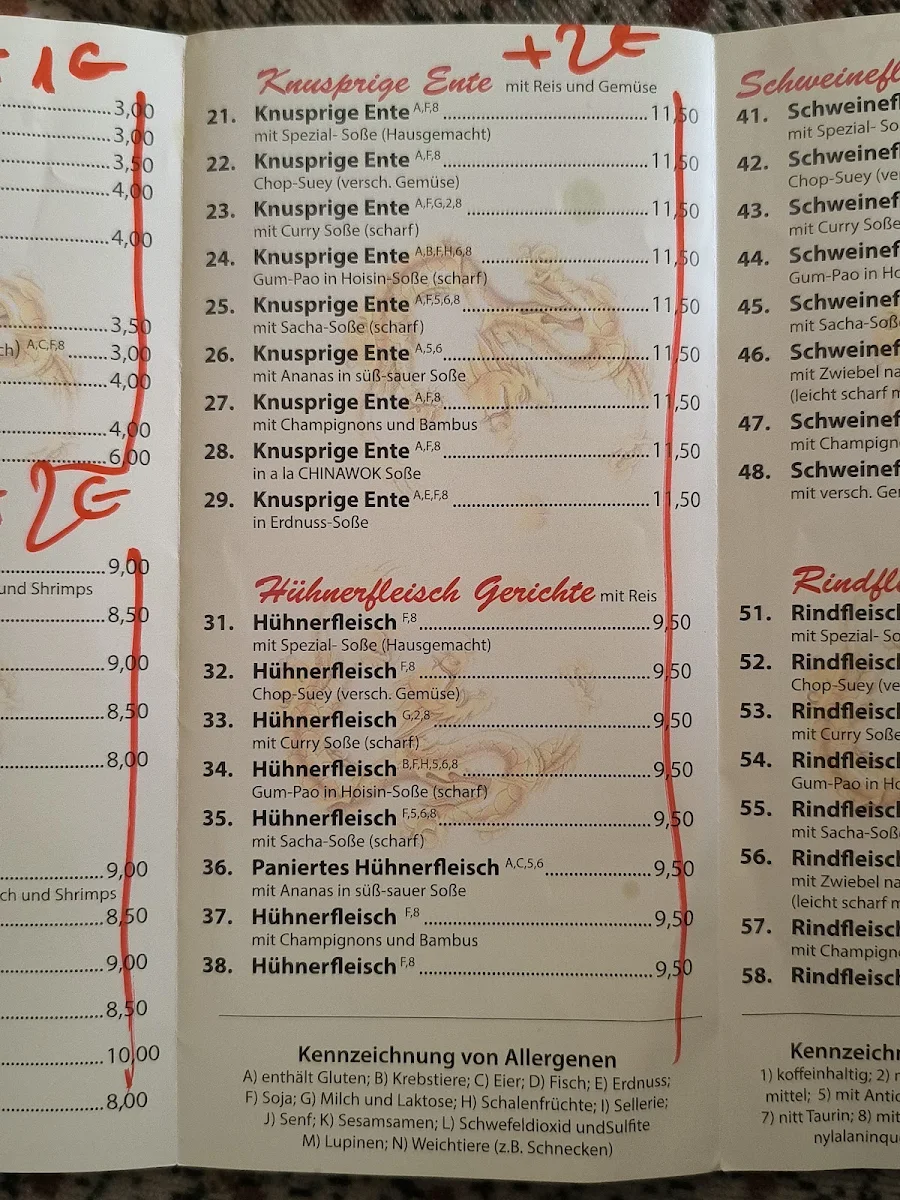 + 1€
3,00
3,00
3,50
4,00
4,00
3,50
ch) A,C,F,8 3,00
4,00
4,00
6,00
+ 2€
9,00
und Shrimps
8,50
9,00
8,50
8,00
9,00
ch und Shrimps
8,50
9,00
8,50
10,00
8,00
+2€
Knusprige Ente mit Reis und Gemüse
21. Knusprige Ente A,F,8 11,50
mit Spezial- Soße (Hausgemacht)
22. Knusprige Ente A,F,8 11,50
Chop-Suey (versch. Gemüse)
23. Knusprige Ente A,F,G,2,8 11,50
mit Curry Soße (scharf)
24. Knusprige Ente A,B,F,H,6,8 11,50
Gum-Pao in Hoisin-Soße (scharf)
25. Knusprige Ente A,F,5,6,8 11,50
mit Sacha-Soße (scharf)
26. Knusprige Ente A,5,6 11,50
mit Ananas in süß-sauer Soße
27. Knusprige Ente A,F,8 11,50
mit Champignons und Bambus
28. Knusprige Ente A,F,8 11,50
in a la CHINAWOK Soße
29. Knusprige Ente A,E,F,8 11,50
in Erdnuss-Soße
Hühnerfleisch Gerichte mit Reis
31. Hühnerfleisch F,8 9,50
mit Spezial- Soße (Hausgemacht)
32. Hühnerfleisch F,8 9,50
Chop-Suey (versch. Gemüse)
33. Hühnerfleisch G,2,8 9,50
mit Curry Soße (scharf)
34. Hühnerfleisch B,F,H,5,6,8 9,50
Gum-Pao in Hoisin-Soße (scharf)
35. Hühnerfleisch F,5,6,8 9,50
mit Sacha-Soße (scharf)
36. Paniertes Hühnerfleisch A,C,5,6 9,50
mit Ananas in süß-sauer Soße
37. Hühnerfleisch F,8 9,50
mit Champignons und Bambus
38. Hühnerfleisch F,8 9,50
Kennzeichnung von Allergenen
A) enthält Gluten; B) Krebstiere; C) Eier; D) Fisch; E) Erdnuss;
F) Soja; G) Milch und Laktose; H) Schalenfrüchte; I) Sellerie;
J) Senf; K) Sesamsamen; L) Schwefeldioxid undSulfite
M) Lupinen; N) Weichtiere (z.B. Schnecken)
Schweinefl
41. Schweinef
mit Spezial- So
42. Schweinef
Chop-Suey (ve
43. Schweinef
mit Curry Soße
44. Schweinef
Gum-Pao in Ho
45. Schweinef
mit Sacha-Soß
46. Schweinef
mit Zwiebel na
(leicht scharf m
47. Schweinef
mit Champign
48. Schweinef
mit versch. Ge
Rindfle
51. Rindfleisch
mit Spezial- So
52. Rindfleisch
Chop-Suey (ve
53. Rindfleisch
mit Curry Soße
54. Rindfleisch
Gum-Pao in Ho
55. Rindfleisch
mit Sacha-Soß
56. Rindfleisch
mit Zwiebel na
(leicht scharf m
57. Rindfleisch
mit Champign
58. Rindfleisch
Kennzeichn
1) koffeinhaltig; 2) r
mittel; 5) mit Antic
7) nitt Taurin; 8) mit
nylalaninqu